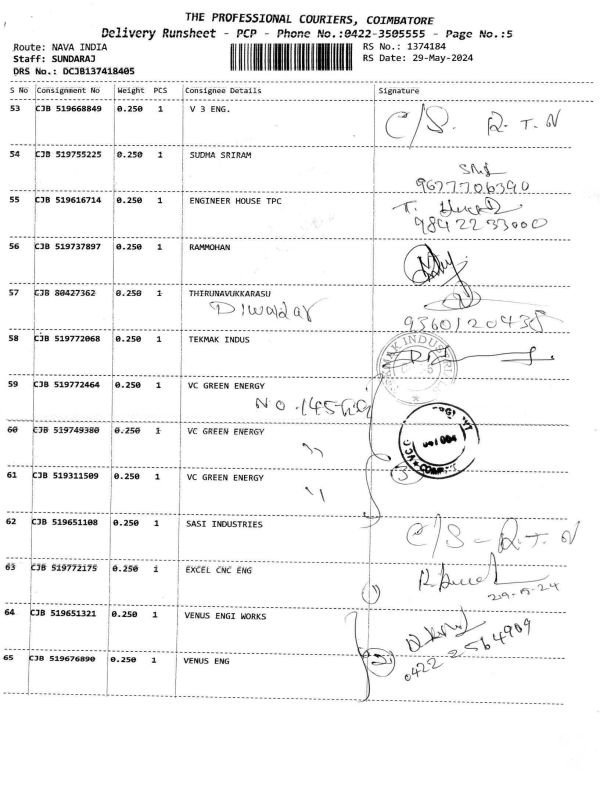 THE PROFESSIONAL COURIERS, COIMBATORE
Delivery Runsheet - PCP - Phone No.:0422-3505555 - Page No.:5
Route: NAVA INDIA
RS No.: 1374184
Staff: SUNDARAJ
RS Date: 29-May-2024
DRS No.: DCJB137418405
S No Consignment No Weight PCS Consignee Details Signature
53 CJB 519668849 0.250 1 V 3 ENG. C/S. R.T.N
54 CJB 519755225 0.250 1 SUDHA SRIRAM
9677706390
55 CJB 519616714 0.250 1 ENGINEER HOUSE TPC T.
9842233000
56 CJB 519737897 0.250 1 RAMMOHAN
57 CJB 80427362 0.250 1 THIRUNAVUKKARASU
Diwadar 9360120438
58 CJB 519772068 0.250 1 TEKMAK INDUS
59 CJB 519772464 0.250 1 VC GREEN ENERGY
NO.
60 CJB 519749380 0.250 1 VC GREEN ENERGY
61 CJB 519311509 0.250 1 VC GREEN ENERGY
62 CJB 519651108 0.250 1 SASI INDUSTRIES C/S - R.T.N
63 CJB 519772175 0.250 1 EXCEL CNC ENG
64 CJB 519651321 0.250 1 VENUS ENGI WORKS
0422 2564909
65 CJB 519676890 0.250 1 VENUS ENG